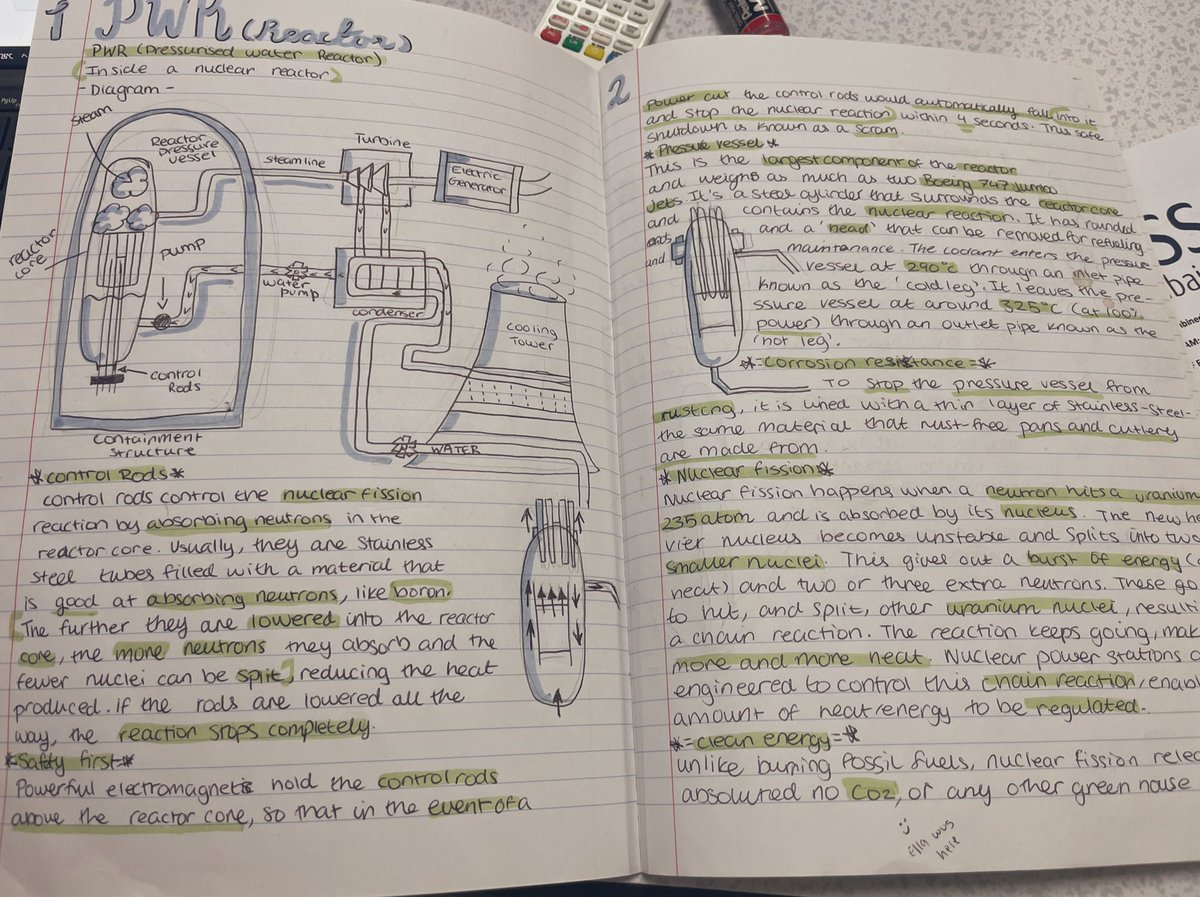 1 PWR (Reactor)
PWR (Pressurised water Reactor)
(Inside a nuclear reactor)
- Diagram -
Steam
Reactor pressure vessel
steamline
Turbine
Electric Generator
reactor core
pump
water pump
condenser
cooling Tower
control Rods
WATER
Containment structure
*control Rods*
control rods control the nuclear fission
reaction by absorbing neutrons in the
reactor core. Usually, they are Stainless
Steel tubes filled with a material that
is good at absorbing neutrons, like boron.
The further they are lowered into the reactor
core, the more neutrons they absorb and the
fewer nuclei can be split, reducing the heat
produced. if the rods are lowered all the
way, the reaction stops completely.
*Safty first*
Powerful electromagnets hold the control rods
above the reactor core, so that in the event of a
2
Power cut the control rods would automatically fall into it
and stop the nuclear reaction within 4 seconds. This safe
shutdown is known as a scram.
*Pressure vessel*
This is the largest component of the reactor
and weighs as much as two Boeing 747 Jumbo
Jets. It's a steel cylinder that surrounds the reactor core
and contains the nuclear reaction. It has rounded
ends and a 'head' that can be removed for refueling
and maintenance. The coolant enters the pressure
vessel at 290°c through an inlet pipe
known as the 'cold leg'. It leaves the pre-
ssure vessel at around 325°C (at 100%
power) through an outlet pipe known as the
'hot leg'.
*=Corrosion resistance=*
To stop the pressure vessel from
rusting, it is lined with a thin layer of stainless-steel-
the same material that rust-free pans and cutlery
are made from.
*Nuclear fission*
Nuclear fission happens when a neutron hits a uranium
235 atom and is absorbed by its nucleus. The new hea
vier nucleus becomes unstable and splits into two
smaller nuclei. This gives out a burst of energy (
heat) and two or three extra neutrons. These go
to hit, and split, other uranium nuclei, resulti
a chain reaction. The reaction keeps going, mak
more and more heat. Nuclear power stations a
engineered to control this chain reaction, enabl
amount of heat/energy to be regulated.
*=clean energy=*
unlike burning fossil fuels, nuclear fission relea
absoluted no CO2, or any other green house
Ella was here
PgUp